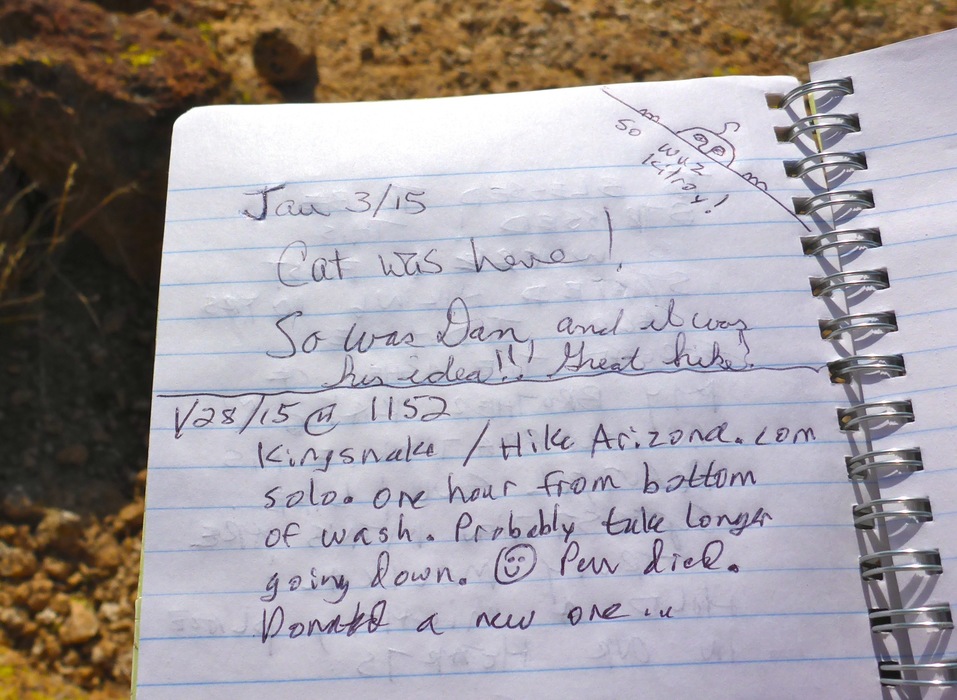 So
wuz
Kilroy!
Jan 3/15
Cat was here!
So was Dan, and it was
his idea!!! Great hike!
1/28/15 @ 1152
Kingsnake / Hike Arizona.com
solo. one hour from bottom
of wash. Probably take longer
going down. ☺ Pen died.
Donated a new one ...